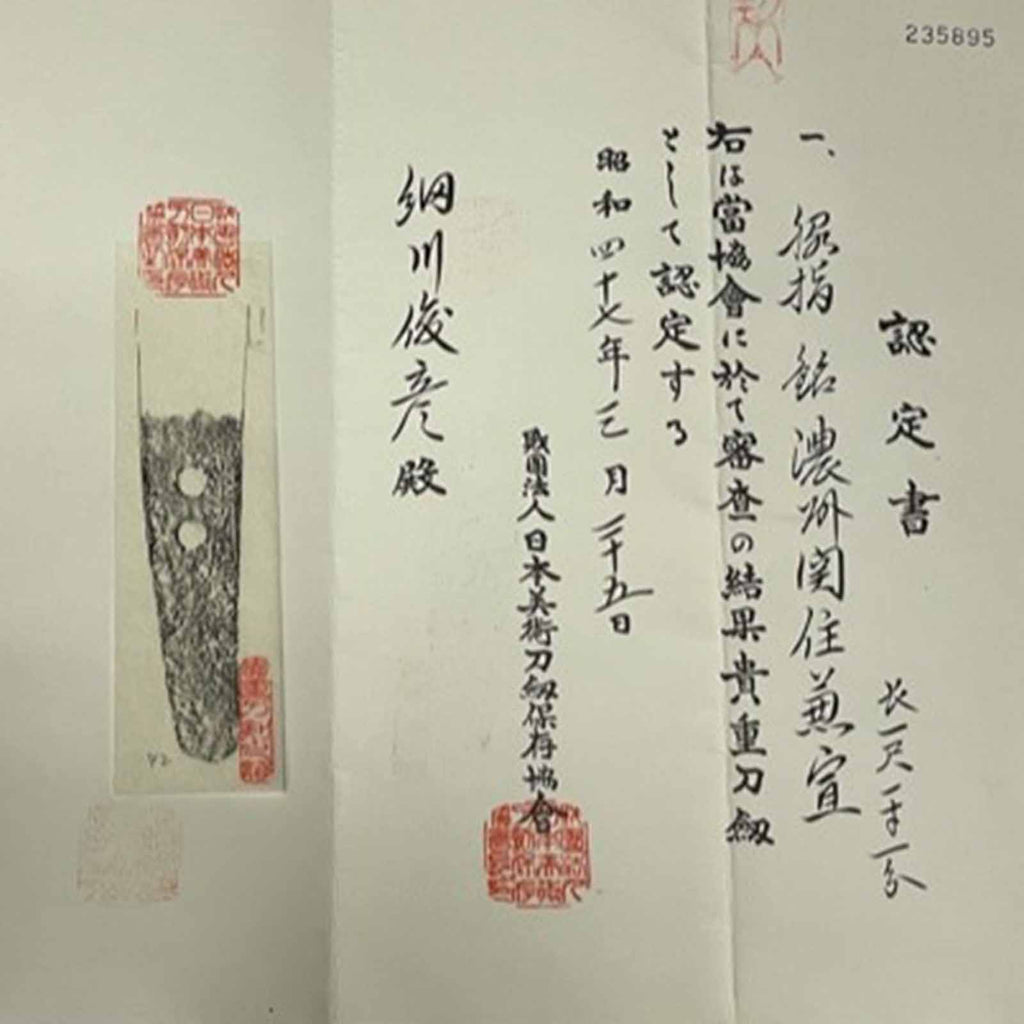 235895
認定書
長一尺一寸一分
一、脇指 銘 濃州関住兼宣
右は當協會に於て審査の結果貴重刀劔
として認定する
昭和四十七年三月二十五日
財團法人日本美術刀劔保存協會
細川俊彦殿